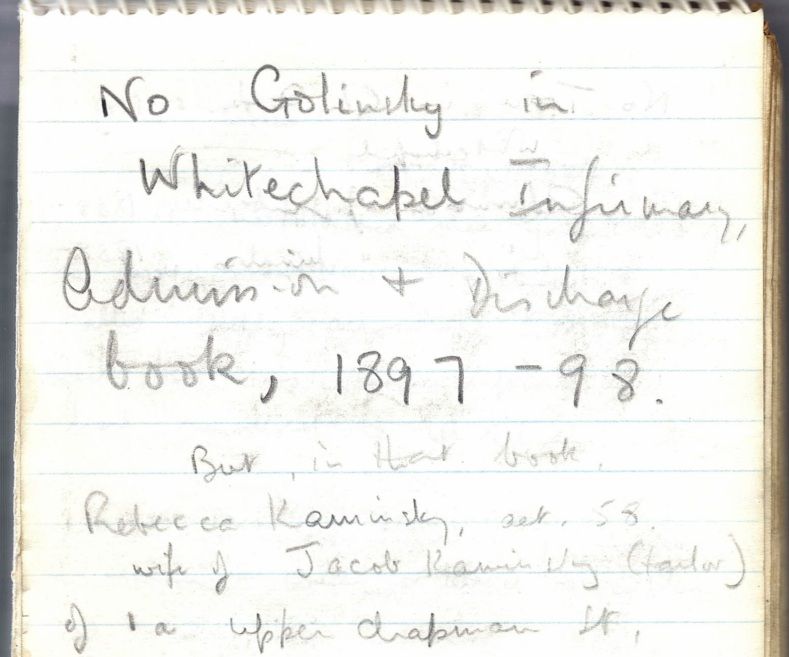 No Golinsky in
Whitechapel Infirmary,
Admission + Discharge
book, 1897-98.
But, in that book,
Rebecca Kaminsky, aet. 58.
wife of Jacob Kaminsky (tailor)
of 1a upper chapman St,